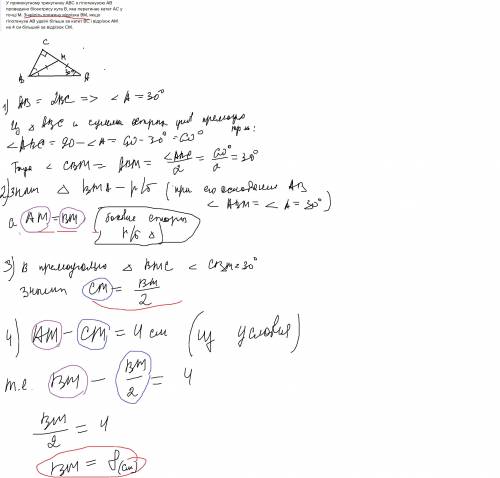 У прямокутному трикутнику ABC з гіпотенузою AB
проведено бісектрису кута B, яка перетинає катет AC у
точці M. Знайдіть довжину відрізка BM, якщо
гіпотенуза AB удвічі більша за катет BC і відрізок AM
на 4 см більший за відрізок CM.
C
M
B
A
30°
1) AB = 2BC => ∠A = 30°
Из △ ABC и сумма острых
∠ABC = 90 - ∠A = 90 - 30° = 60°
Тогда ∠ CBM = ABM = ∠ABC/2 = 60°/2 = 30°
2) значит △ BMA - р/б (при его основании AB
∠ ABM = ∠ A = 30°)
а AM = BM (боковые стороны
р/б △)
3) В прямоугольно △ BMC ∠ CBM = 30°
значит CM = BM/2
4) AM - CM = 4 см (из условия)
т.е. BM - BM/2 = 4
BM/2 = 4
BM = 8 (см)